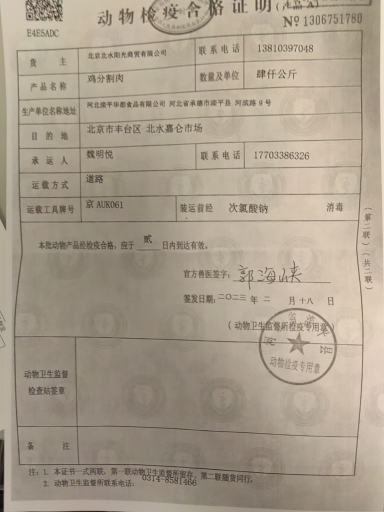 动物检疫合格证明(产品A)
E4E5ADC
№ 1306751780
货 主 北京北水阳光商贸有限公司 联系电话 13810397048
产品名称 鸡分割肉 数量及单位 肆仟公斤
生产单位名称地址 河北滦平华都食品有限公司 河北省承德市滦平县 河滨路9号
目的地 北京市丰台区 北水嘉仑市场
承运人 魏明悦 联系电话 17703386326
运载方式 道路
运载工具牌号 京AUK061 装运前经 次氯酸钠 消毒
本批动物产品经检疫合格，应于 贰 日内到达有效。
官方兽医签字：郭海侠
签发日期：二〇二三 年 二 月 十八 日
(动物卫生监督所检疫专用章)
动物检疫专用章
动物卫生监督
检查站签章
备 注
注：1. 本证书一式两联，第一联动物卫生监督所留存，第二联随货同行。
2. 动物卫生监督所联系电话：0314-8581466
(第二联)
(共二联)